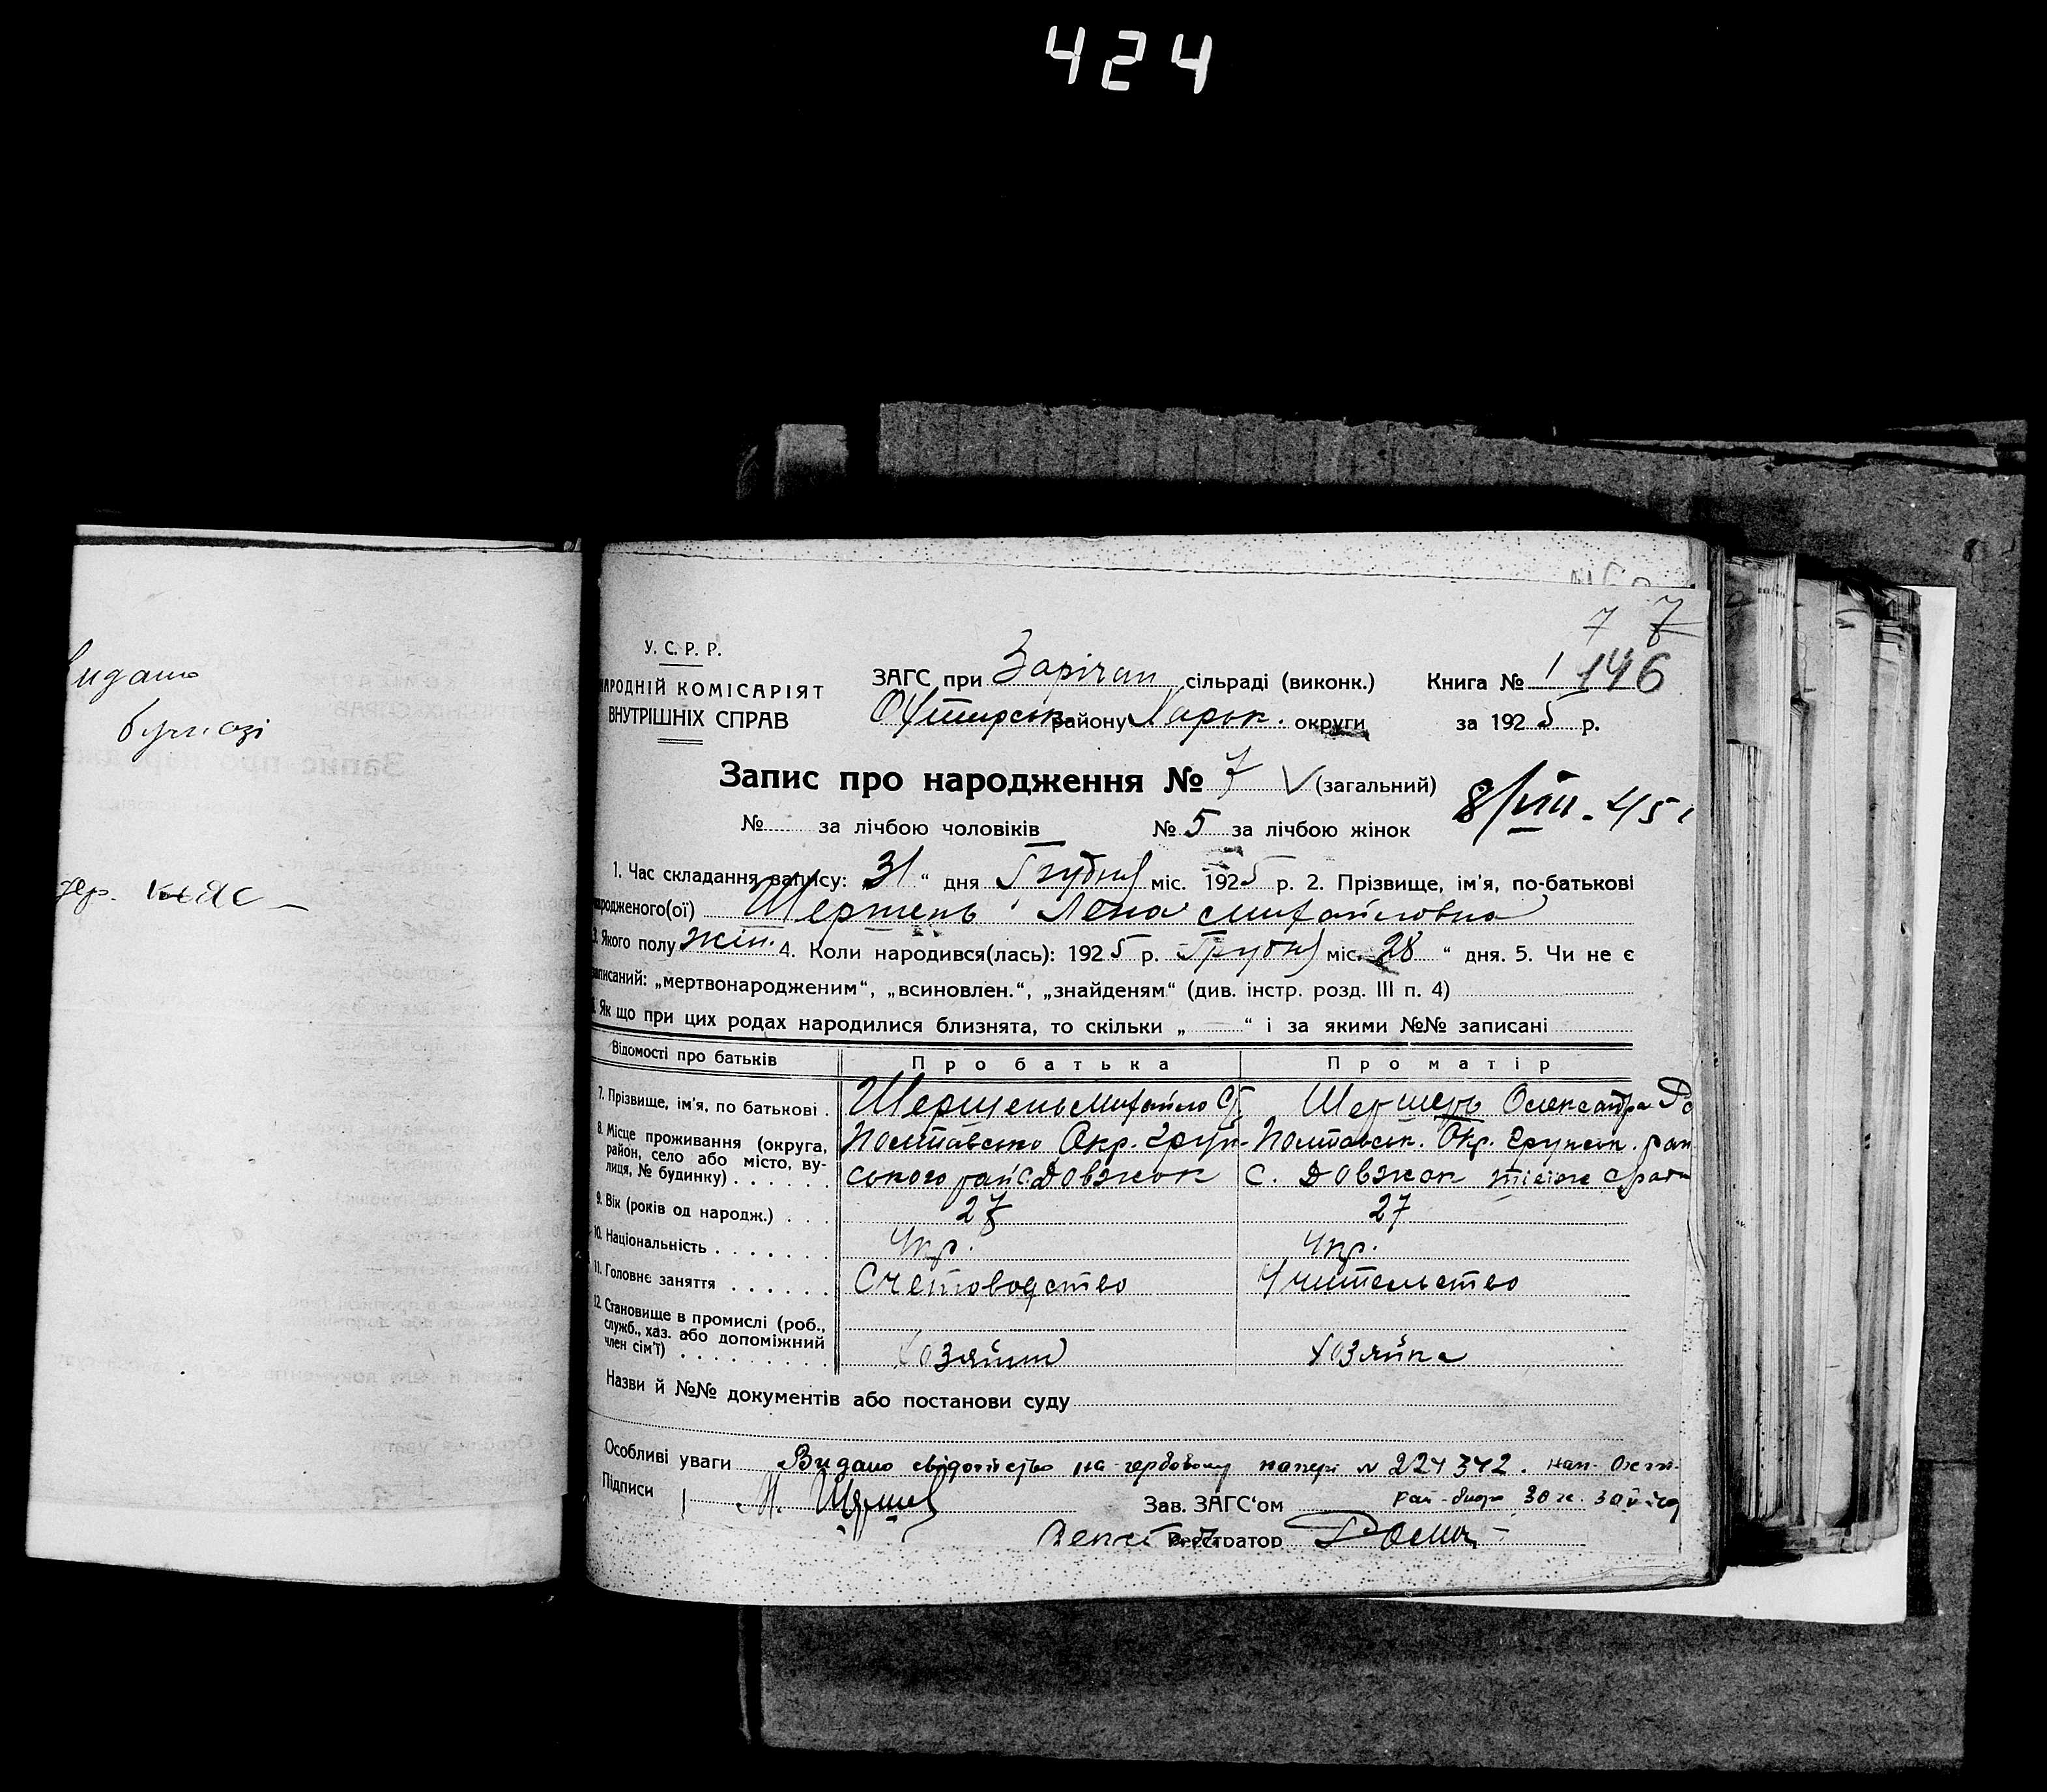 424
идано
бумазі
7 7
У. С. Р. Р.
НАРОДНІЙ КОМІСАРІЯТ
ВНУТРІШНІХ СПРАВ
ЗАГС при Зарічан сільраді (виконк.) Книга № 1 146
Охтирськ району Харьк. округи за 1925 р.
Запис про народження № 7 (загальний)
8/VIII - 45
№ за лічбою чоловіків № 5 за лічбою жінок
1. Час складання запису: 31 “ дня Грудня міс. 1925 р. 2. Прізвище, ім'я, по-батькові
народженого(ої) Шершень Лена Михайловна
3. Якого полу жін. 4. Коли народився(лась): 1925 р. Грудня міс. 28 “ дня. 5. Чи не є
записаний: „мертвонародженим“, „всиновлен.“, „знайденям“ (див. інстр. розд. III п. 4)
6. Як що при цих родах народилися близнята, то скільки „ — “ і за якими №№ записані
Відомості про батьків Про батька Про матір
7. Прізвище, ім'я, по батькові . Шершень Михайло Шершень Олександра
8. Місце проживання (округа, район, село або місто, вулиця, № будинку) . . . . . .
Полтавсько Окр. Грун- Полтавськ. Окр. Грунськ. рай
ського рай с. Довжок С. Довжок
9. Вік (років од народж.) . . . 27 27
10. Національність . . . . . . . Укр. Укр.
11. Головне заняття . . . . . . Счетоводство Учительство
12. Становище в промислі (роб., служб., хаз. або допоміжний член сім'ї) . . . . . . . . .
Хозяїин Хозяйка
Назви й №№ документів або постанови суду
Особливі уваги Видано свідоцтво на гербовому папері № 224342.
Підписи М. Зав. ЗАГС'ом
Реєстратор